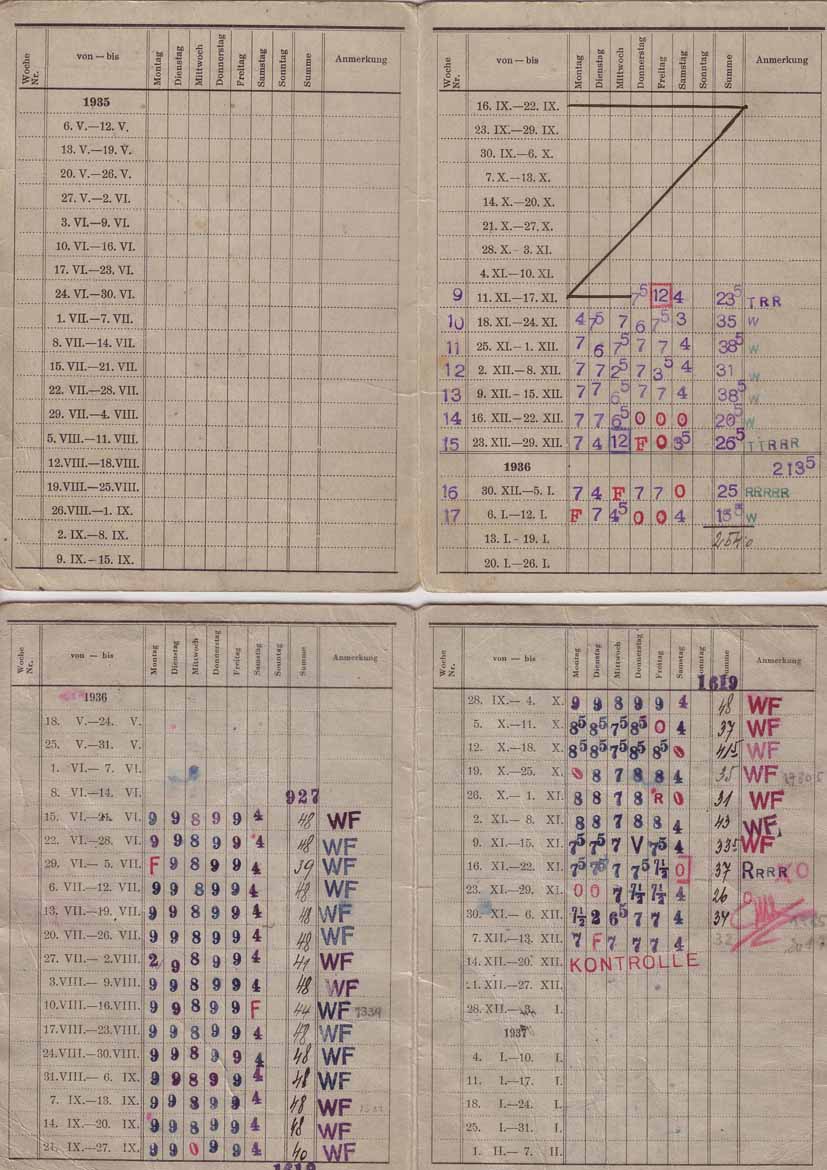 Woche Nr. von — bis Montag Dienstag Mittwoch Donnerstag Freitag Samstag Sonntag Summe Anmerkung
1935
6. V.—12. V.
13. V.—19. V.
20. V.—26. V.
27. V.—2. VI.
3. VI.—9. VI.
10. VI.—16. VI.
17. VI.—23. VI.
24. VI.—30. VI.
1. VII.—7. VII.
8. VII.—14. VII.
15. VII.—21. VII.
22. VII.—28. VII.
29. VII.—4. VIII.
5. VIII.—11. VIII.
12. VIII.—18. VIII.
19. VIII.—25. VIII.
26. VIII.—1. IX.
2. IX.—8. IX.
9. IX.—15. IX.
Woche Nr. von — bis Montag Dienstag Mittwoch Donnerstag Freitag Samstag Sonntag Summe Anmerkung
16. IX.—22. IX.
23. IX.—29. IX.
30. IX.—6. X.
7. X.—13. X.
14. X.—20. X.
21. X.—27. X.
28. X.—3. XI.
4. XI.—10. XI.
9 11. XI.—17. XI. 7⁵ 12 4 23⁵ TRR
10 18. XI.—24. XI. 4 7⁵ 7 6 7⁵ 3 35 W
11 25. XI.—1. XII. 7 6 7⁵ 7 7 4 38⁵ W
12 2. XII.—8. XII. 7 7 2⁵ 7 3⁵ 4 31 W
13 9. XII.—15. XII. 7 7 6⁵ 7 7 4 38⁵ W
14 16. XII.—22. XII. 7 7 6⁵ 0 0 0 20⁵ W
15 23. XII.—29. XII. 7 4 12 F 0 3⁵ 26⁵ TTRRR
1936 213⁵
16 30. XII.—5. I. 7 4 F 7 7 0 25 RRRRR
17 6. I.—12. I. F 7 4⁵ 0 0 4 W
13. I.—19. I.
20. I.—26. I.
Woche Nr. von — bis Montag Dienstag Mittwoch Donnerstag Freitag Samstag Sonntag Summe Anmerkung
1936
18. V.—24. V.
25. V.—31. V.
1. VI.—7. VI.
8. VI.—14. VI. 927
15. VI.—21. VI. 9 9 8 9 9 4 48 WF
22. VI.—28. VI. 9 9 8 9 9 4 48 WF
29. VI.—5. VII. F 9 8 9 9 4 39 WF
6. VII.—12. VII. 9 9 8 9 9 4 48 WF
13. VII.—19. VII. 9 9 8 9 9 4 48 WF
20. VII.—26. VII. 9 9 8 9 9 4 48 WF
27. VII.—2. VIII. 2 9 8 9 9 4 41 WF
3. VIII.—9. VIII. 9 9 8 9 9 4 48 WF
10. VIII.—16. VIII. 9 9 8 9 9 F 44 WF 1339
17. VIII.—23. VIII. 9 9 8 9 9 4 48 WF
24. VIII.—30. VIII. 9 9 8 9 9 4 48 WF
31. VIII.—6. IX. 9 9 8 9 9 4 48 WF
7. IX.—13. IX. 9 9 8 9 9 4 48 WF
14. IX.—20. IX. 9 9 8 9 9 4 48 WF
21. IX.—27. IX. 9 9 0 9 9 4 40 WF
1619
Woche Nr. von — bis Montag Dienstag Mittwoch Donnerstag Freitag Samstag Sonntag Summe Anmerkung
1619
28. IX.—4. X. 9 9 8 9 9 4 48 WF
5. X.—11. X. 8⁵ 8⁵ 7⁵ 8⁵ 0 4 37 WF
12. X.—18. X. 8⁵ 8⁵ 7⁵ 8⁵ 8⁵ 0 41⁵ WF
19. X.—25. X. 0 8 7 8 8 4 35 WF
26. X.—1. XI. 8 8 7 8 R 0 31 WF
2. XI.—8. XI. 8 8 7 8 8 4 43 WF
9. XI.—15. XI. 7⁵ 7⁵ 7 V 7⁵ 4 33⁵ WF
16. XI.—22. XI. 7⁵ 7⁵ 7 7⁵ 7½ 0 37 RRRR
23. XI.—29. XI. 0 0 7 7½ 7½ 4 26
30. XI.—6. XII. 7½ 2 6⁵ 7 7 4 34
7. XII.—13. XII. 7 F 7 7 7 4 32
14. XII.—20. XII. KONTROLLE
21. XII.—27. XII.
28. XII.—3. I.
1937
4. I.—10. I.
11. I.—17. I.
18. I.—24. I.
25. I.—31. I.
1. II.—7. II.